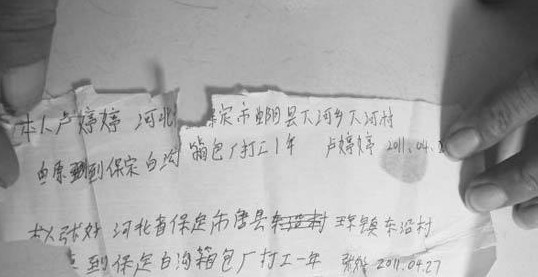 本人卢婷婷 河北 保定市曲阳县下河乡下河村
自愿到保定白沟箱包厂打工1年 卢婷婷 2011.04.2
本人张好 河北省保定市唐县 东沿村
到保定白沟箱包厂打工一年 张好 2011.04.27